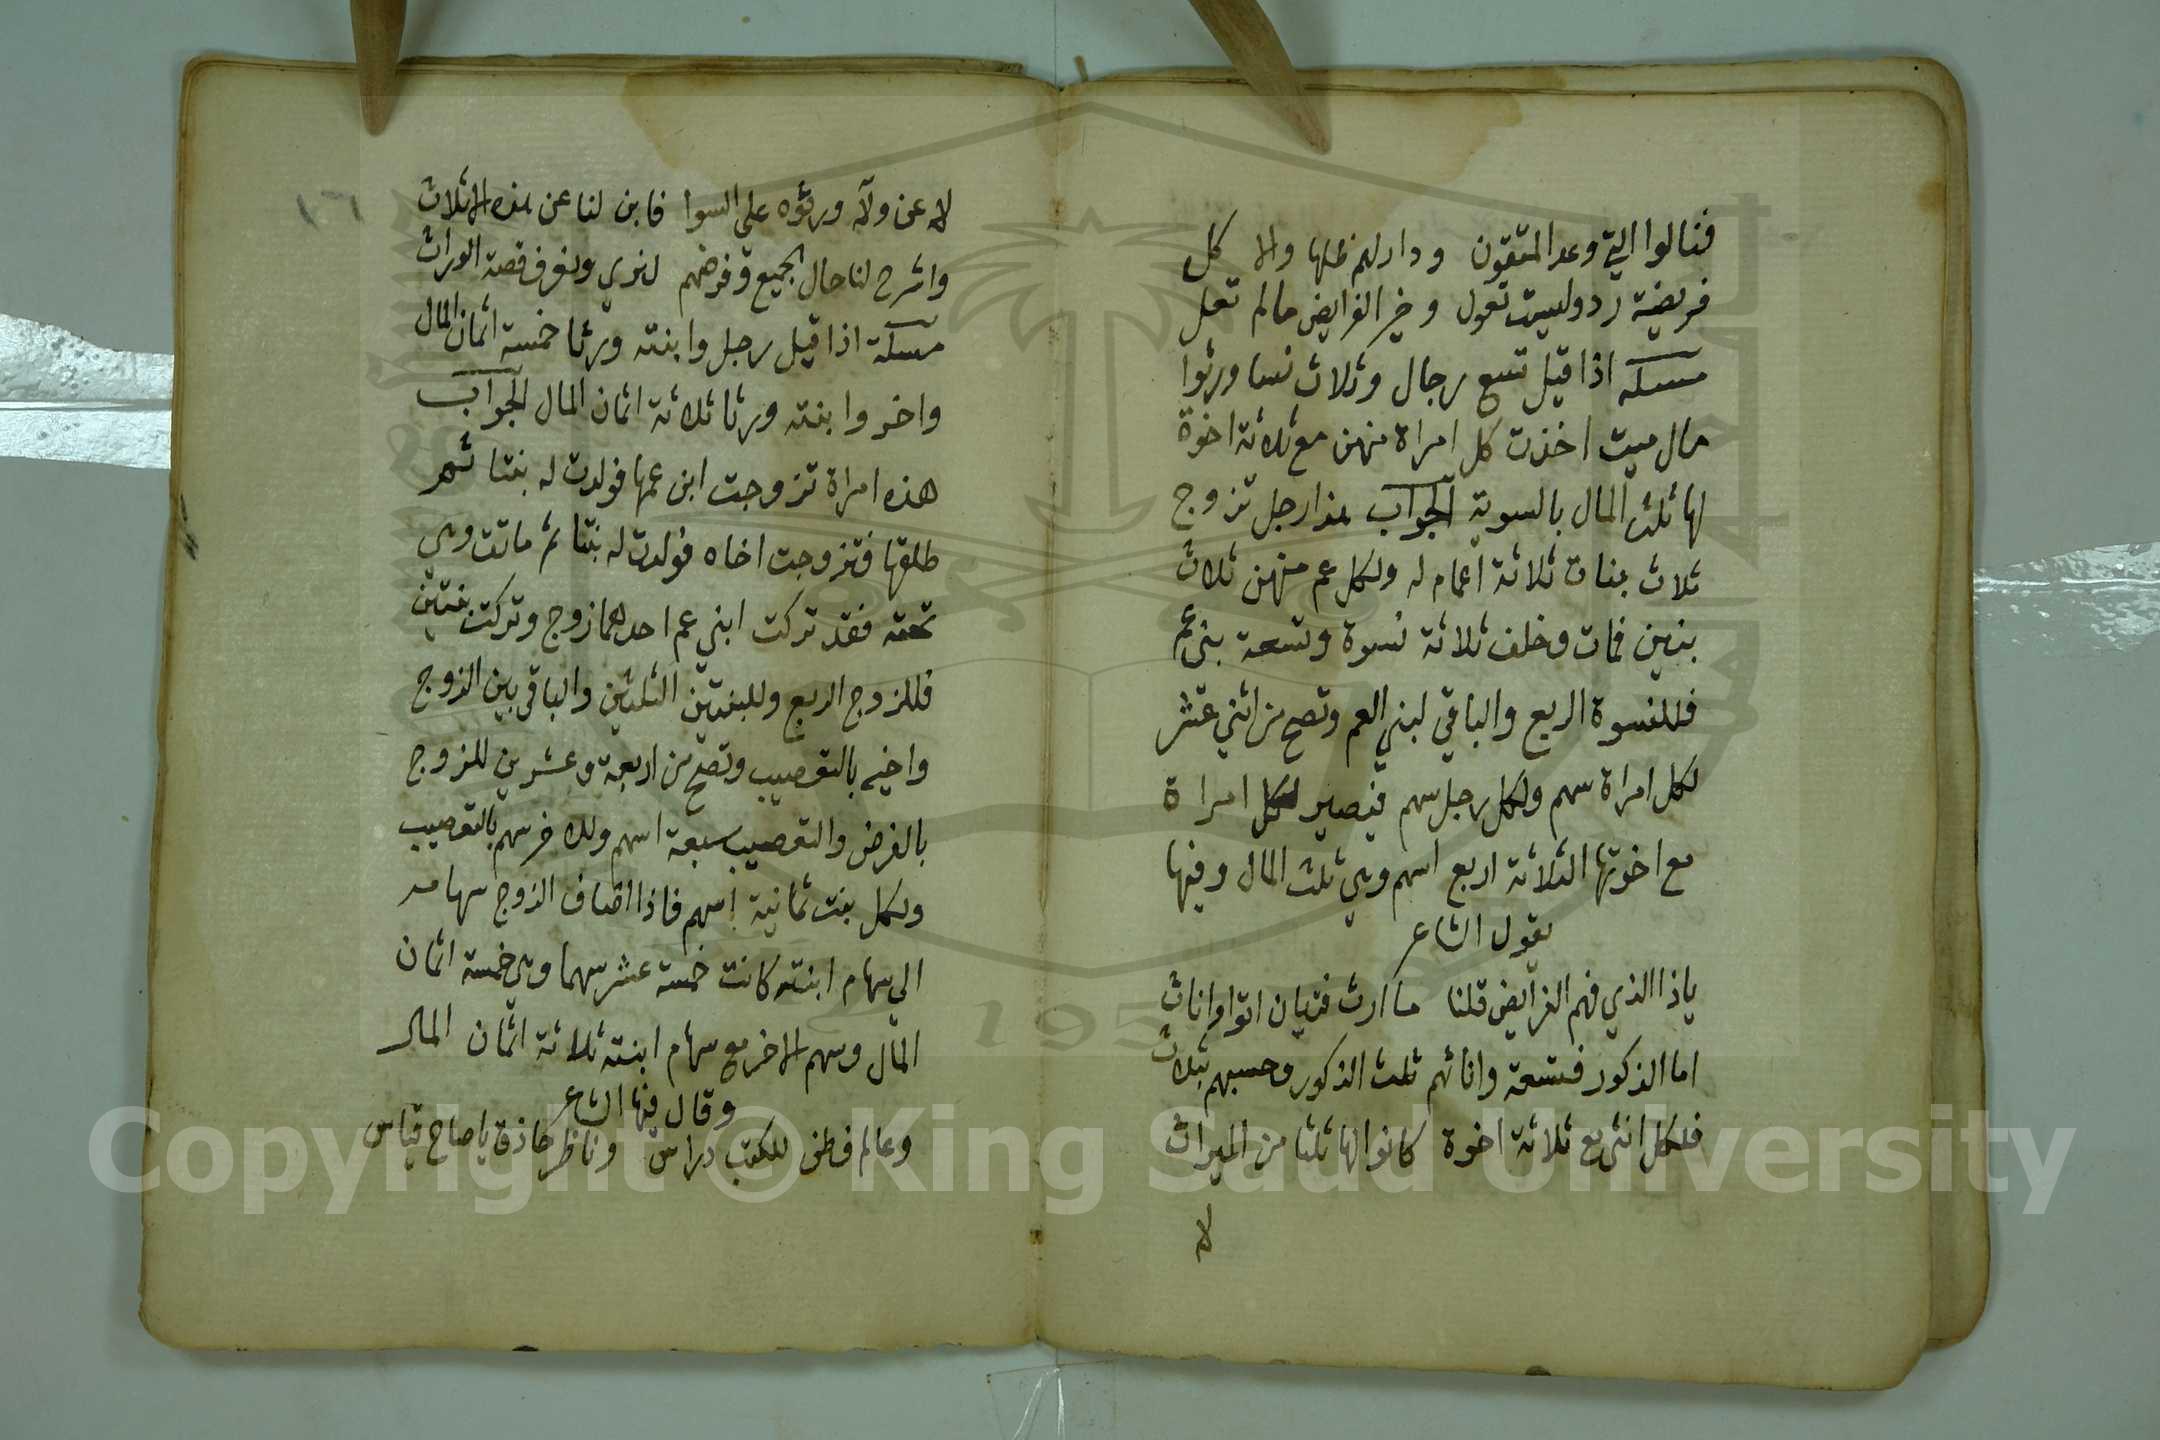 فنالوا التي وعد المتقون ودار لهم ظلها والا كل
فريضة رد وليست تعول وخير الفرايض مالم تعل
مسئلة اذا قيل تسع رجال وثلاث نسا ورثوا
مال ميت اخذت كل امراة منهن مع ثلاثة اخوة
لها ثلث المال بالسوية الجواب هذا رجل تزوج
ثلاث بنات ثلاثة اعمام له ولكل عم منهن ثلاث
بنين فمات وخلف ثلاثة نسوة وتسعة بني عم
فللنسوة الربع والباقي لبني العم وتصح من اثني عشر
لكل امراة سهم ولكل رجل سهم فيصير لكل امراة
مع اخوتها الثلاثة اربع اسهم وهي ثلث المال وفيها
يقول الشاعر
ياذا الذي فهم الفرايض قلنا ما ارث فتيان اتوا واناث
اما الذكور فتسعة واناثهم ثلث الذكور وحسبهم بثلاث
فلكل انثى مع ثلاثة اخوة كانوا لها ثلثا من الميراث
لا
لا عن ولاء ورثوه على السوا فابن لنا عن هذه الاثلاث
واشرح لنا حال الجميع وفرضهم لنري ونعرف قصة الوراث
مسئلة اذا قيل رجل وابنته ورثا خمسة اثمان المال
واخر وابنته ورثا ثلاثة اثمان المال الجواب
هذه امراة تزوجت ابن عمها فولدت له بنتا ثم
طلقها فتزوجت اخاه فولدت له بنتا ثم ماتت وهي
تحته فقد تركت ابني عم احدهما زوج وتركت بنتين
فللزوج الربع وللبنتين الثلثين والباقي بين الزوج
واخيه بالتعصيب وتصح من اربعة وعشرين للزوج
بالفرض والتعصيب سبعة اسهم وللاخر سهم بالتعصيب
ولكل بنت ثمانية اسهم فاذا اضاف الزوج سهامه
الي سهام ابنته كانت خمسة عشر سهما وهي خمسة اثمان
المال وسهم الاخر مع سهام ابنته ثلاثة اثمان المال
وقال فيها الشاعر
وعالم فطن للكتب دراس وناظر حاذق ياصاح قياس
Copyright © King Saud University